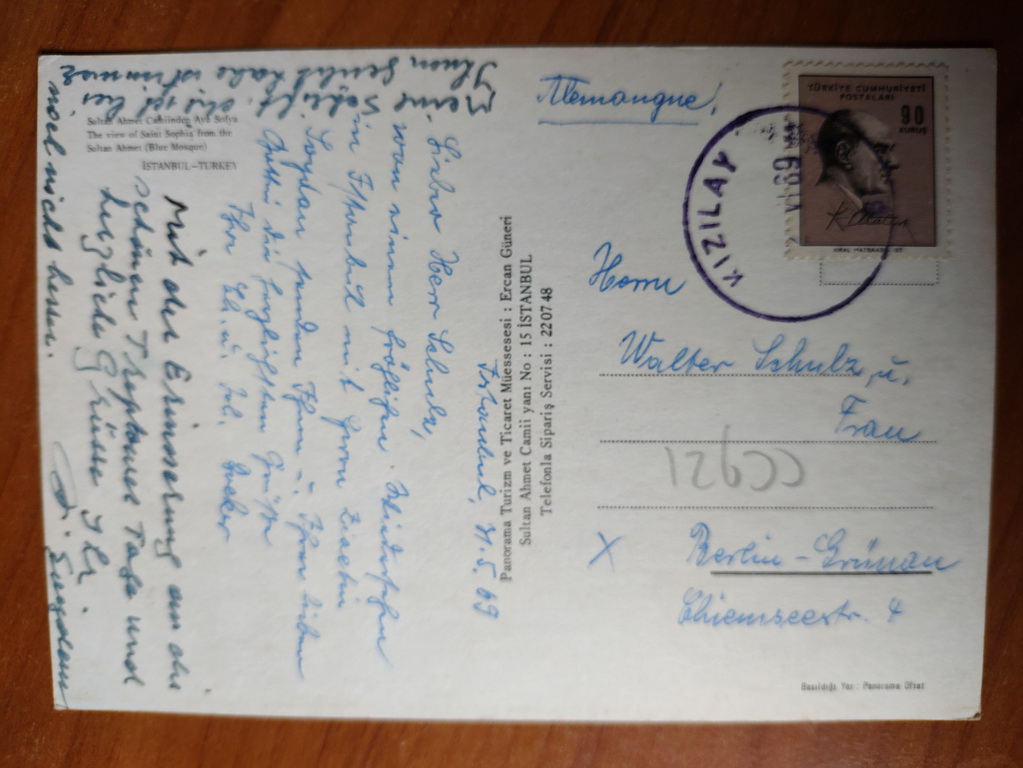 Sultan Ahmet Camiinden Aya Sofya
The view of Saint Sophia from the
Sultan Ahmet (Blue Mosque)
İSTANBUL-TURKEY
Istanbul, .5.69
Lieber Herr Schulz,
von einem fröhlichen Wiedersehen
in Istanbul mit Herrn
Soydan senden Ihnen u. Ihrer lieben
Gattin die herzlichsten Grüße
Ihre u. Becker
Mit der Erinnerung an die
schönen Treptower Tage und
herzliche Grüße Ihr
Meine Schrift, die ich bei
Ihnen habe ist immer
noch nicht besser.
Panorama Turizm ve Ticaret Müessesesi : Ercan Güneri
Sultan Ahmet Camii yanı No : 15 İSTANBUL
Telefonla Sipariş Servisi : 22 07 48
Allemangne!
TÜRKİYE CUMHURİYETİ
POSTALARI
90
KURUŞ
KIZILAY
Herrn
Walter Schulz u.
Frau
CC921
X
Berlin-Grünau
Chiemseestr. 4
Basıldığı Yer : Panorama Ofset